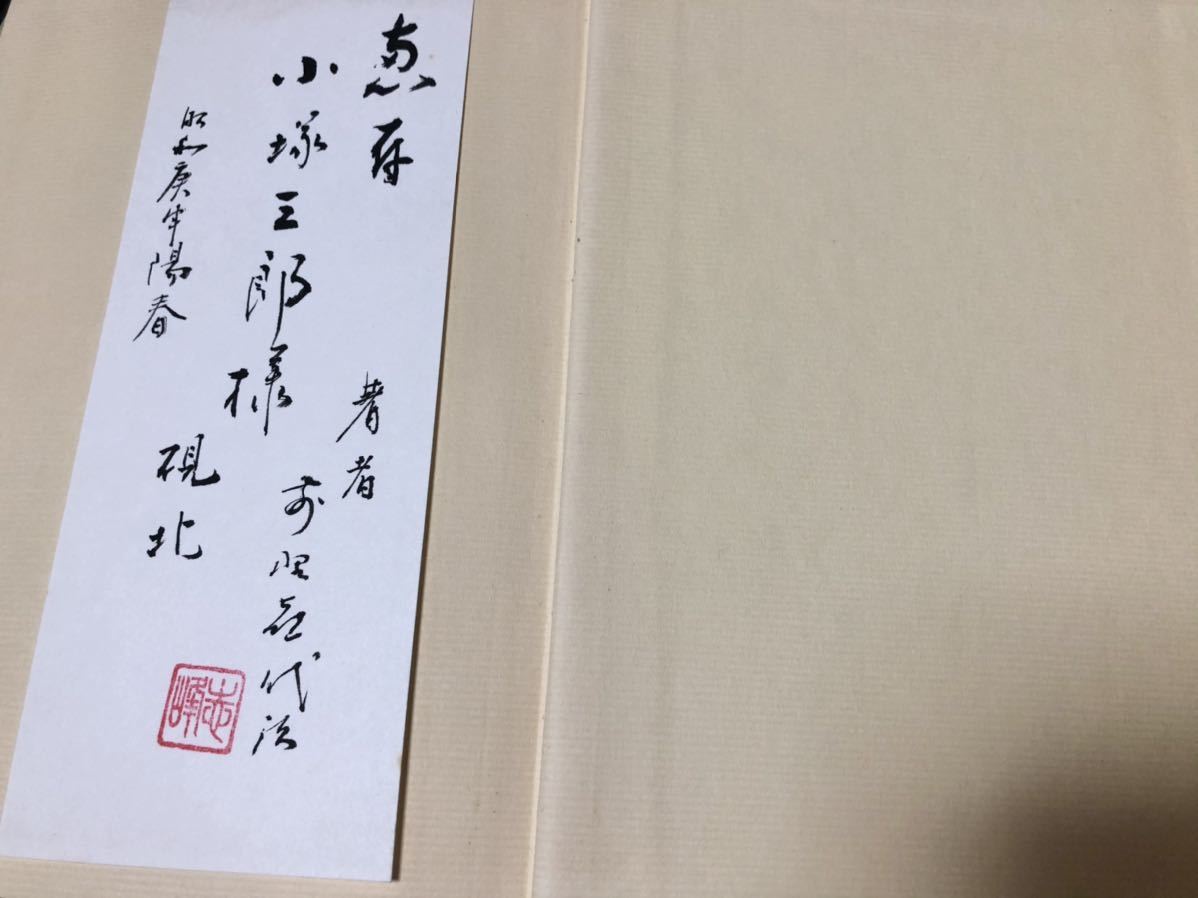 惠存
著者
前喜代治
小塚三郎様
硯北
昭和庚午陽春